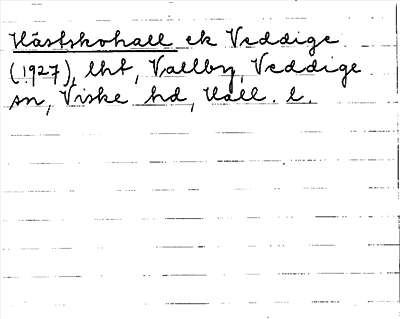 Hästskohall ek Veddige
(1927), lht, Vallby, Veddige
sn, Viske hd, Hall. l.